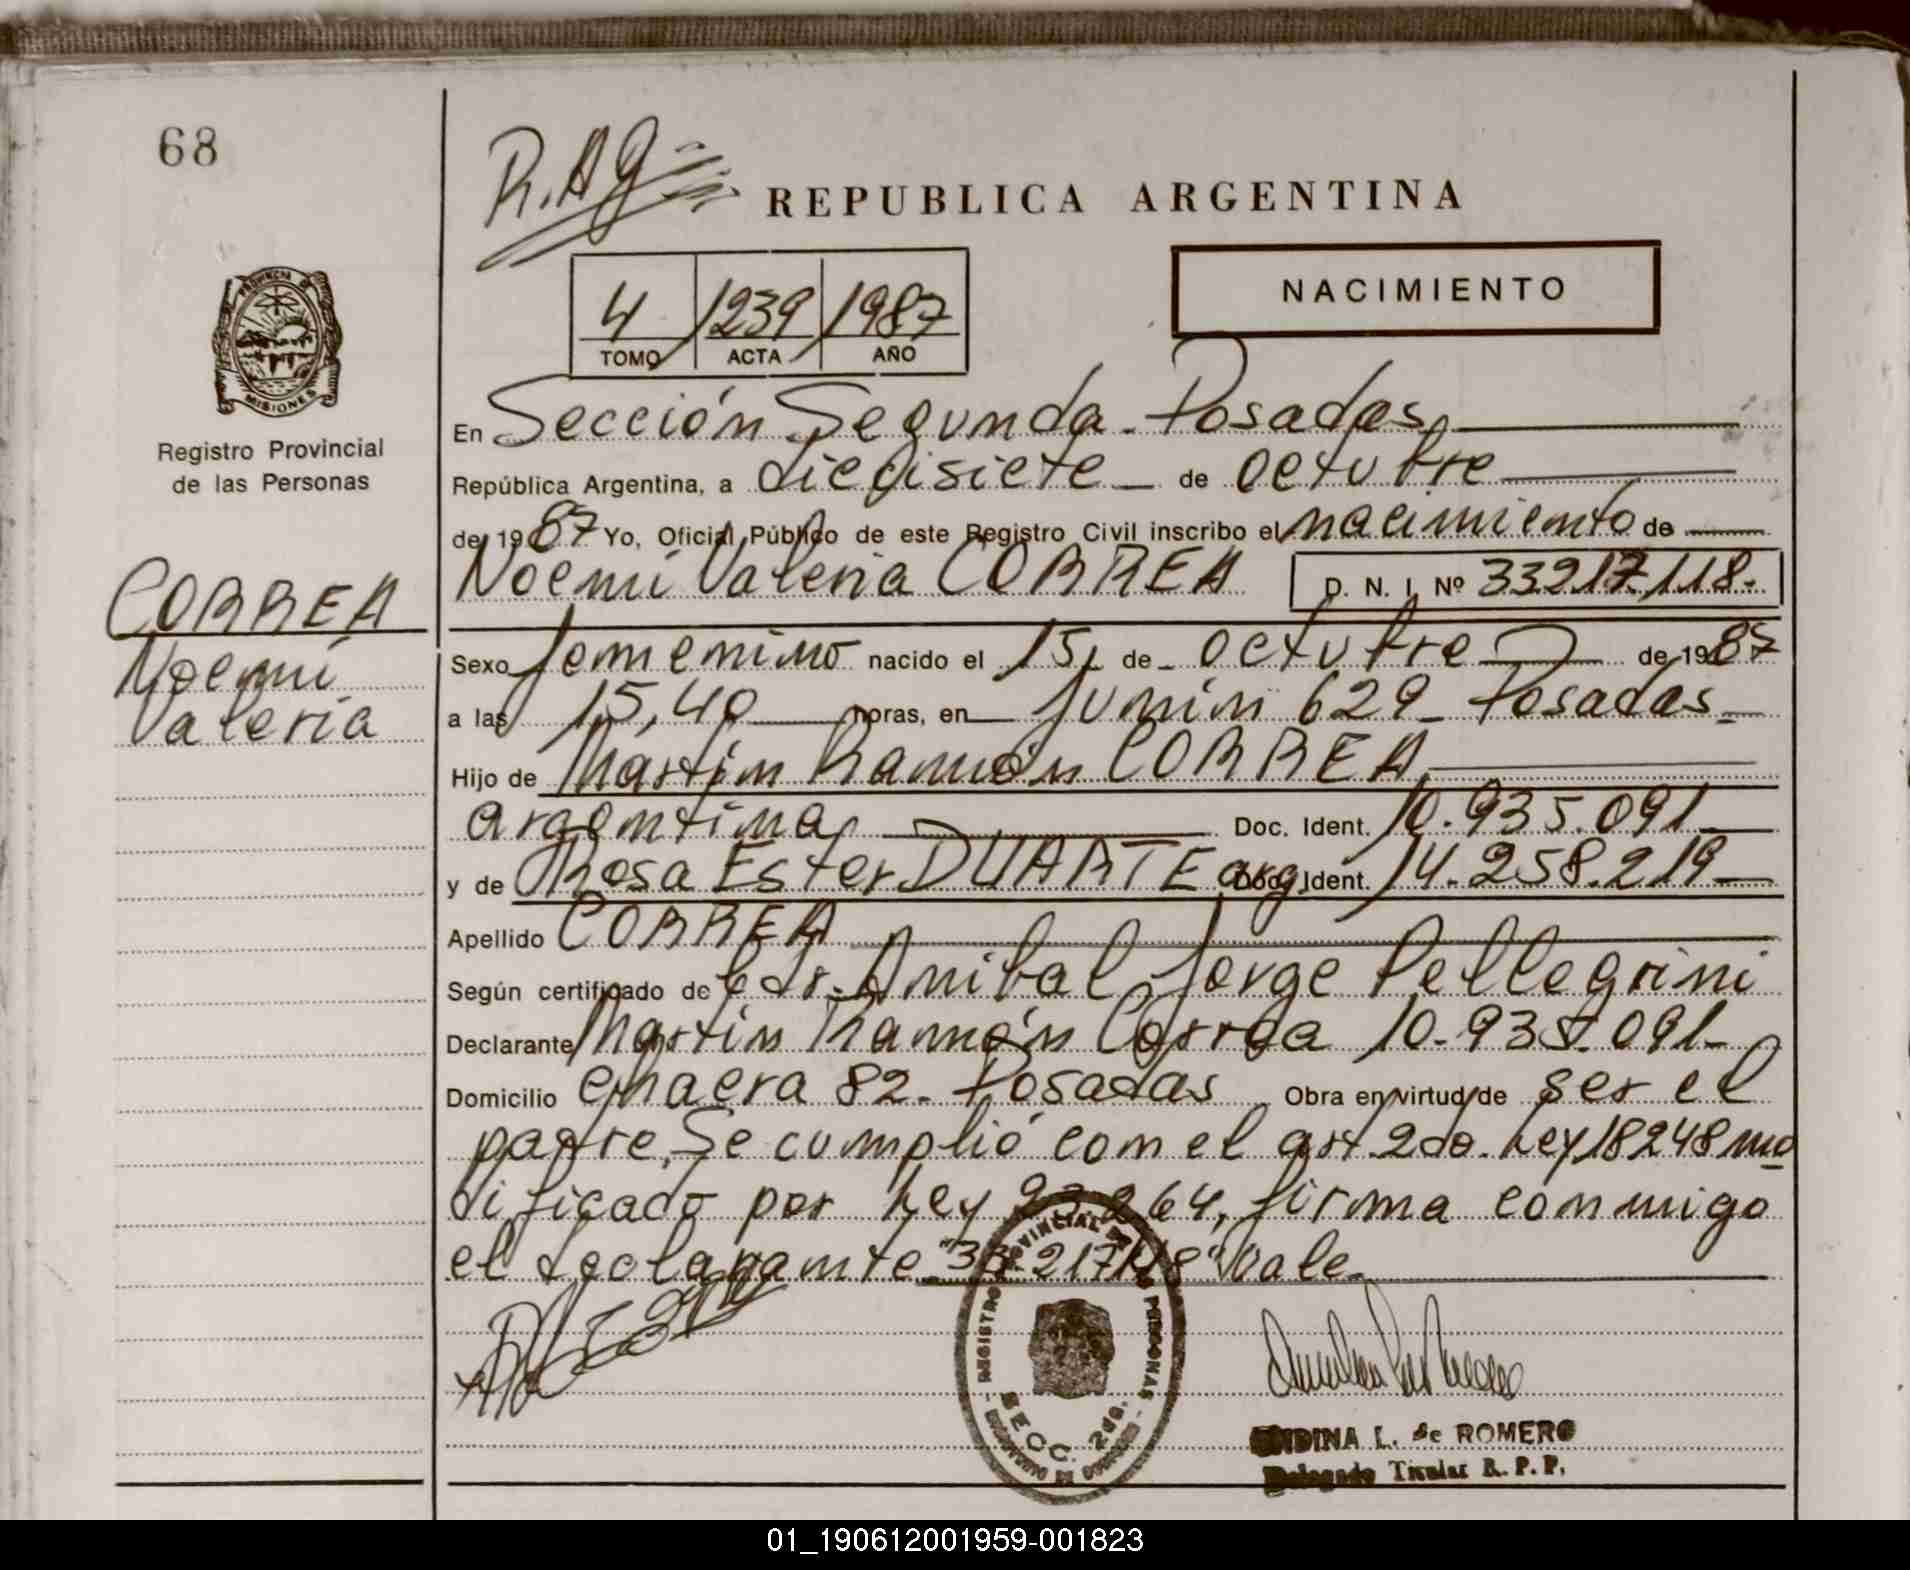 68
R.A9
REPUBLICA ARGENTINA
NACIMIENTO
4 1239 1987
TOMO ACTA AÑO
PROVINCIA DE
MISIONES
Registro Provincial
de las Personas
CORREA
Noemí
Valeria
En Sección Segunda - Posadas
República Argentina, a diecisiete de octubre
de 1987 Yo, Oficial Público de este Registro Civil inscribo el nacimiento de
Noemí Valeria CORREA D. N. I. Nº 33217.118.
Sexo femenino nacido el 15, de octubre de 1987
a las 15,40 horas, en Junín 629 - Posadas
Hijo de Martín Ramón CORREA
argentina Doc. Ident. 10.935.091
y de Rosa Ester DUARTE arg. Doc. Ident. 14.258.219
Apellido CORREA
Según certificado de dr. Anibal Jorge Pellegrini
Declarante Martín Ramón Correa 10.935.091
Domicilio chacra 82 - Posadas Obra en virtud de ser el
padre. Se cumplió con el art. 2do. Ley 18248 mo
dificado por Ley 23.264, firma conmigo
el declarante "33217118" Vale
REGISTRO PROVINCIAL DE LAS PERSONAS
SECC. 2da.
L. de ROMERO
Delegado Titular R. P. P.
01_190612001959-001823